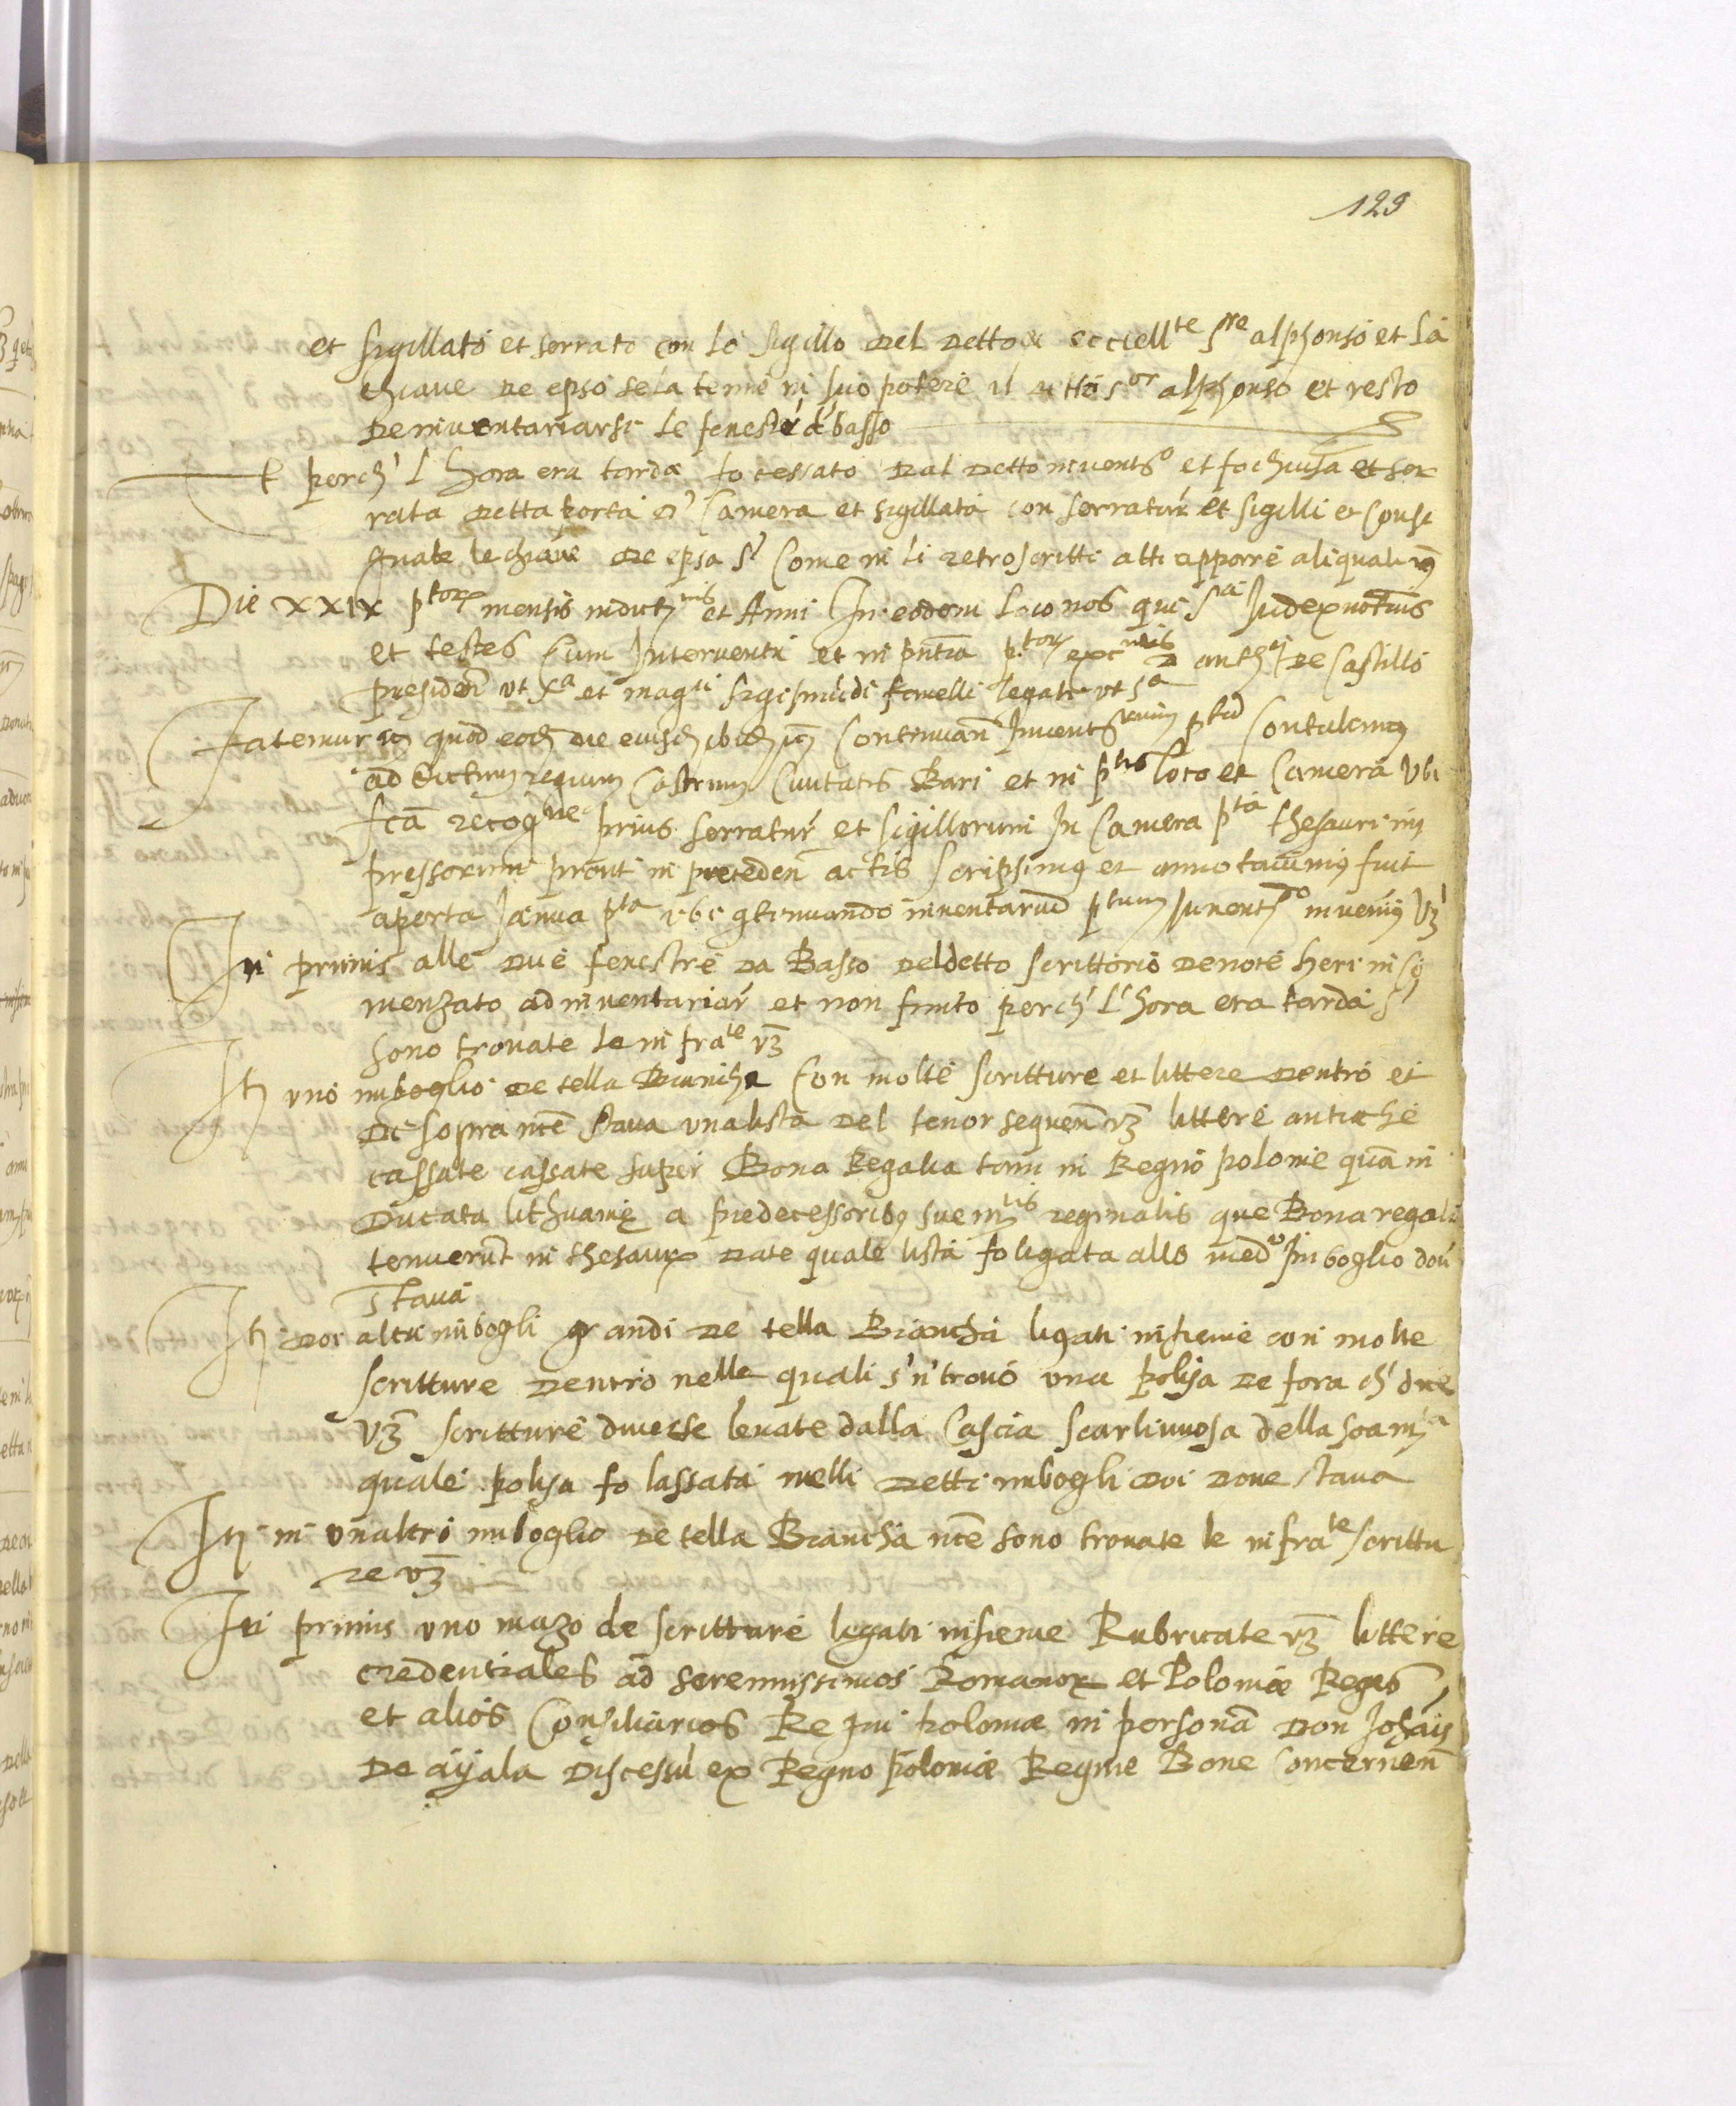 129
et sigillato et serrato con lo sigillo del detto eccell.te S.re alphonso et la
chiave de epso se la tenne in suo potere il detto s.or alphonso et resto
de inventariarsi le fenestr' de basso
Et perch' l'hora era tarda fo cessato dal detto invent.o et fo chiusa et ser
rata detta porta d' Camera et sigillata con serratur' et sigilli et consi
gnate le chiave de epsa s.r come in li retroscritti atti appare
Die xxix p.torum mensis indict.nis et Anni In eodem loco nos qui s.a Judex notarius
et testes Cum Interventu et in pñtia p.torum anth.i de Castillo
presideñ ut s.a et mag.ci sigismũdi legati ut s.a
Fatemur quod eod die Continuañ Invent p.tũ Contulimus
ad dictum regium Castrum Civitatis Bari et in p.tis loco et Camera Ubi
fcã recog.ne prius serratur' et sigillorum In Camera p.ta thesauri im
pressorum prout in precedeñ actis scripsimus et annotavimus fuit
aperta Janua p.ta ubi inventarium p.tum invenimus vz
In primis alle due fenestre da Basso del detto scrittorio de noce heri inco
menzato ad inventariar' et non finito perch' l'hora era tarda s'
sono trovate le infra.te vz
It uno imboglio de tella Biancha Con molte scritture et littere dentro et
de sopra nce stava una lista del tenor sequeñ vz littere antiche
cassate cassate super Bona Regalia tam in Regno polonie quã in
Ducatu lithuanię a predecessoribus sue m.tis reginalis que Bona regali
tenuerũt in thesaurum date quale lista fo ligata allo med.o Imboglio dov'
stava
It doi altri imbogli grandi de tella Biancha ligati insieme con molte
scritture dentro nelle quali s'n' trovò una polisa de fora ch' dice
vz scritture diverse levate dalla Cascia della soa m.ta
quale polisa fo lassata nelli detti imbogli doi dove stava
It in un altro imboglio de tella Biancha nce sono trovate le infra.te scrittu
re vz
In primis uno mazo de scritture ligati insieme Rubricate vz littere
credentiales ad serenissimos Romanorum et Poloniæ Reges
et alios Consiliarios Regni poloniæ in personã Don Johãis
De ayala discessũ ex Regno poloniæ Regine Bone Concerneñ